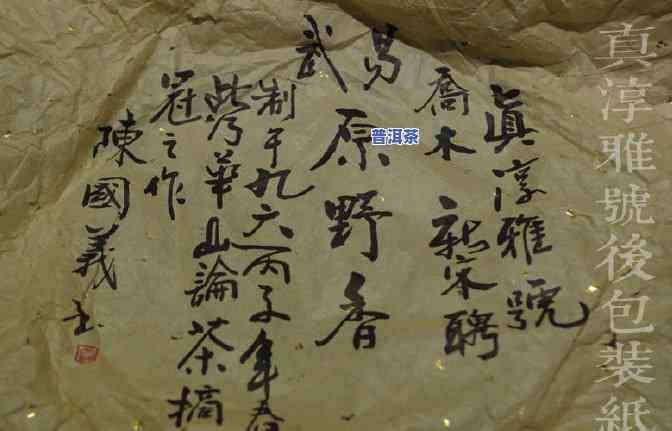 真淳雅號後包裝紙
眞淳雅號
喬木 宋聘
易武
原野香
普洱茶
制于九六丙子年春
華山論茶摘
冠之作
陳國義